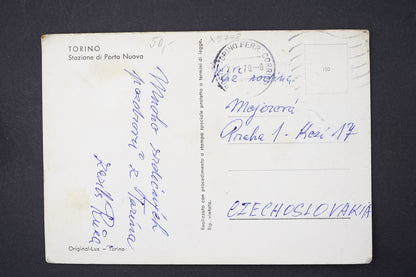 TORINO
Stazione di Porta Nuova
50,-
Mnoho srdečných
pozdravů z Torina
Original-Lux - Torino
Realizzato con procedimento a stampa speciale protetto a termini di legge.
Rip. vietata.
TORINO FERR. CORR.
rodina
Majorová
Praha 1 - Kozí 17
CZECHOSLOVAKIA